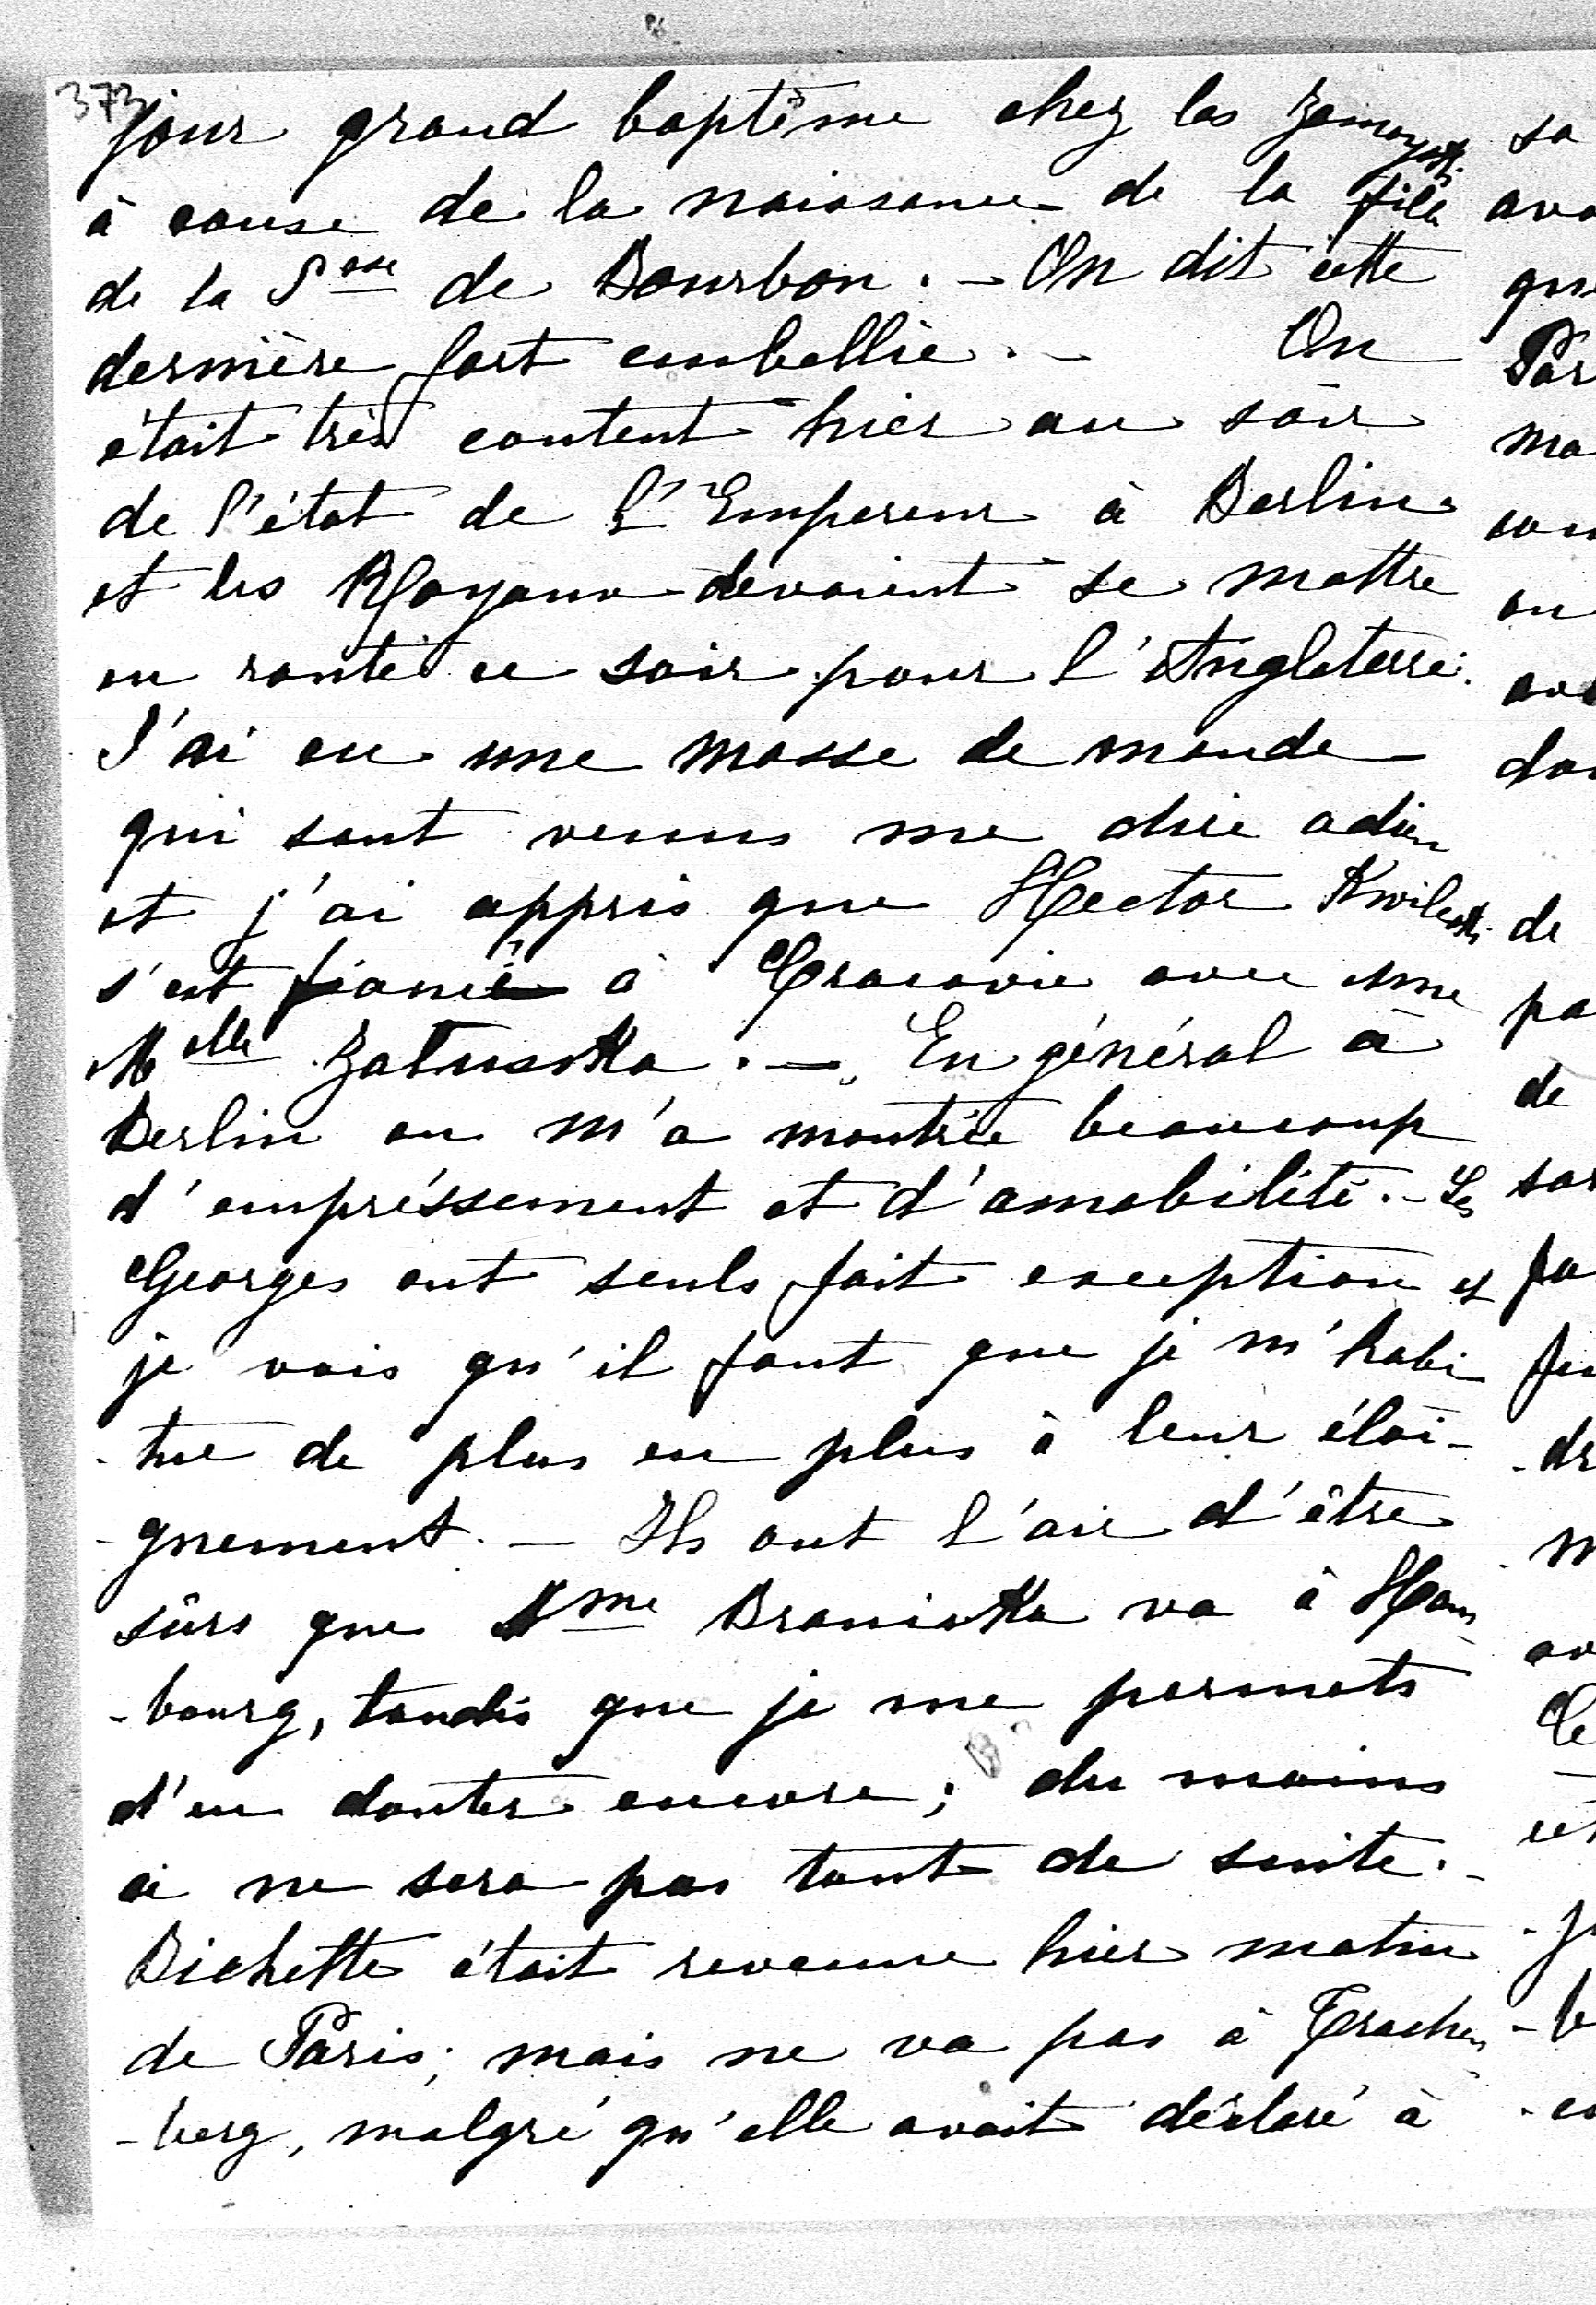 373
jour grand baptême chez les Zamoyski
à cause de la naissance de la fille
de la Psse de Bourbon. - On dit cette
dernière fort embellie. - On
était très content hier au soir
de l'état de l'Empereur à Berlin
et les Royaux devaient se mettre
en route ce soir pour l'Angleterre.
J'ai eu une masse de monde
qui sont venus me dire adieu
et j'ai appris que Hector Kwilecki
s'est fiancé à Cracovie avec une
Melle Zaluska. - En général à
Berlin on m'a montrée beaucoup
d'empréssement et d'amabilité. - Les
Georges ont seuls fait exception et
je vois qu'il faut que je m'habi
-tue de plus en plus à leur éloi-
-gnement. - Ils ont l'air d'être
sûrs que Mme Branicka va à Ham
-bourg, tandis que je me permets
d'en douter encore; du moins
ce ne sera pas tout de suite. -
Bichette était revenue hier matin
de Paris; mais ne va pas à Trachen
-berg, malgré qu'elle avait déclaré à